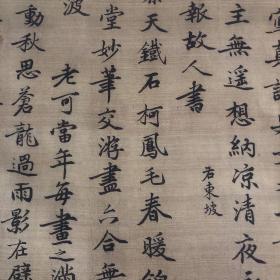 主無遥想納凉清夜
報故人書
右東坡
泰天鐵石柯鳳毛春暖
堂妙筆交游盡六合無
老可當年每畫之滿
波
動秋思蒼龍過雨影在壁